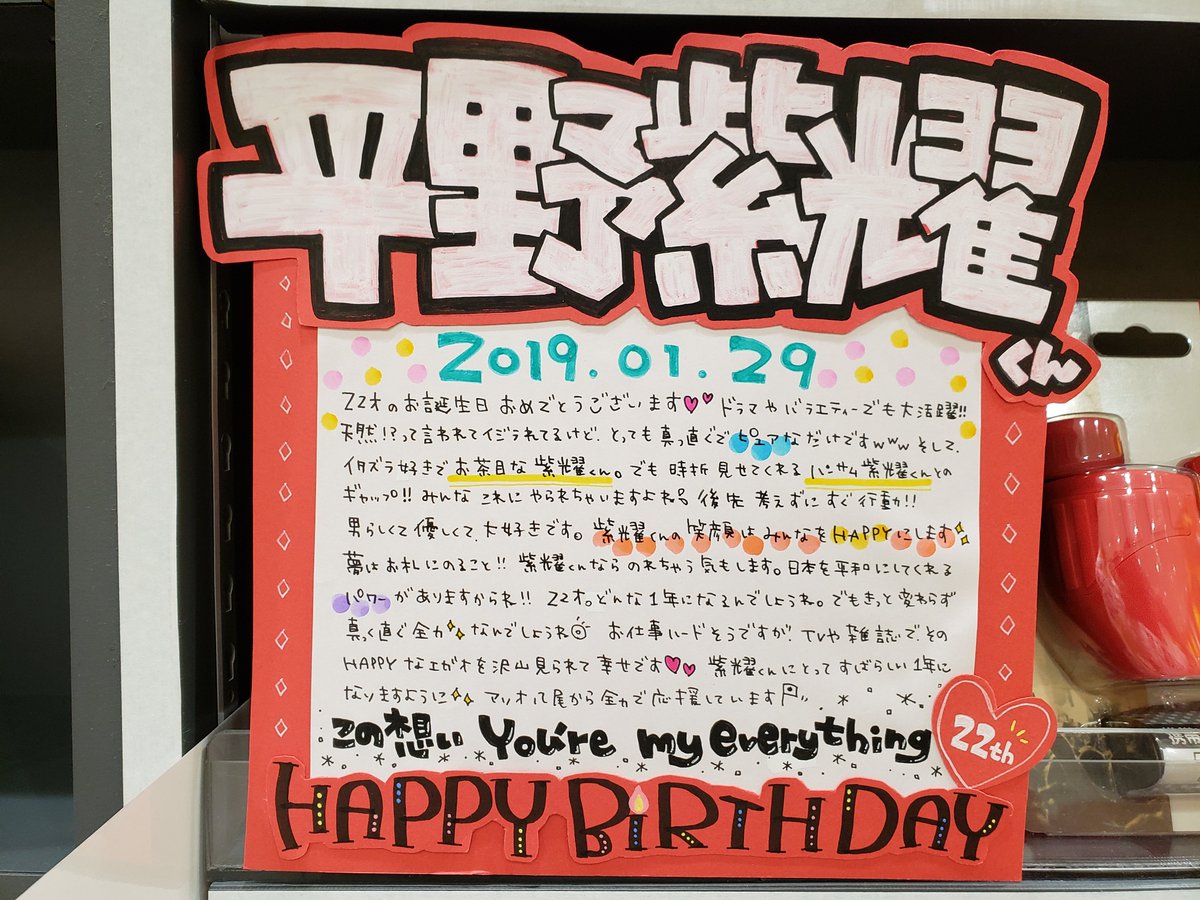 平野紫耀
くん
2019.01.29
22才のお誕生日 おめでとうございます♥♥ ドラマやバラエティーでも大活躍!!
天然!?って言われてイジられてるけど、とっても真っ直ぐでピュアなだけですwww そして、
イタズラ好きでお茶目な紫耀くん。でも時折見せてくれるハンサム紫耀くんとの
ギャップ!! みんなこれにやられちゃいますよね。後先考えずにすぐ行動!!
男らしくて優しくて、大好きです。紫耀くんの笑顔はみんなをHAPPYにします✨
夢はお札にのること!! 紫耀くんならのれちゃう気もします。日本を平和にしてくれる
パワーがありますからね!! 22才。どんな1年になるんでしょうね。でもきっと変わらず
真っ直ぐ全力✨なんでしょうね お仕事ハードそうですが、TVや雑誌で、その
HAPPYなエガオを沢山見られて幸せです♥♥ 紫耀くんにとってすばらしい1年に
なりますように✨ アリオ八尾から全力で応援しています
この想い You're my everything
22th
HAPPY BIRTHDAY
携帯